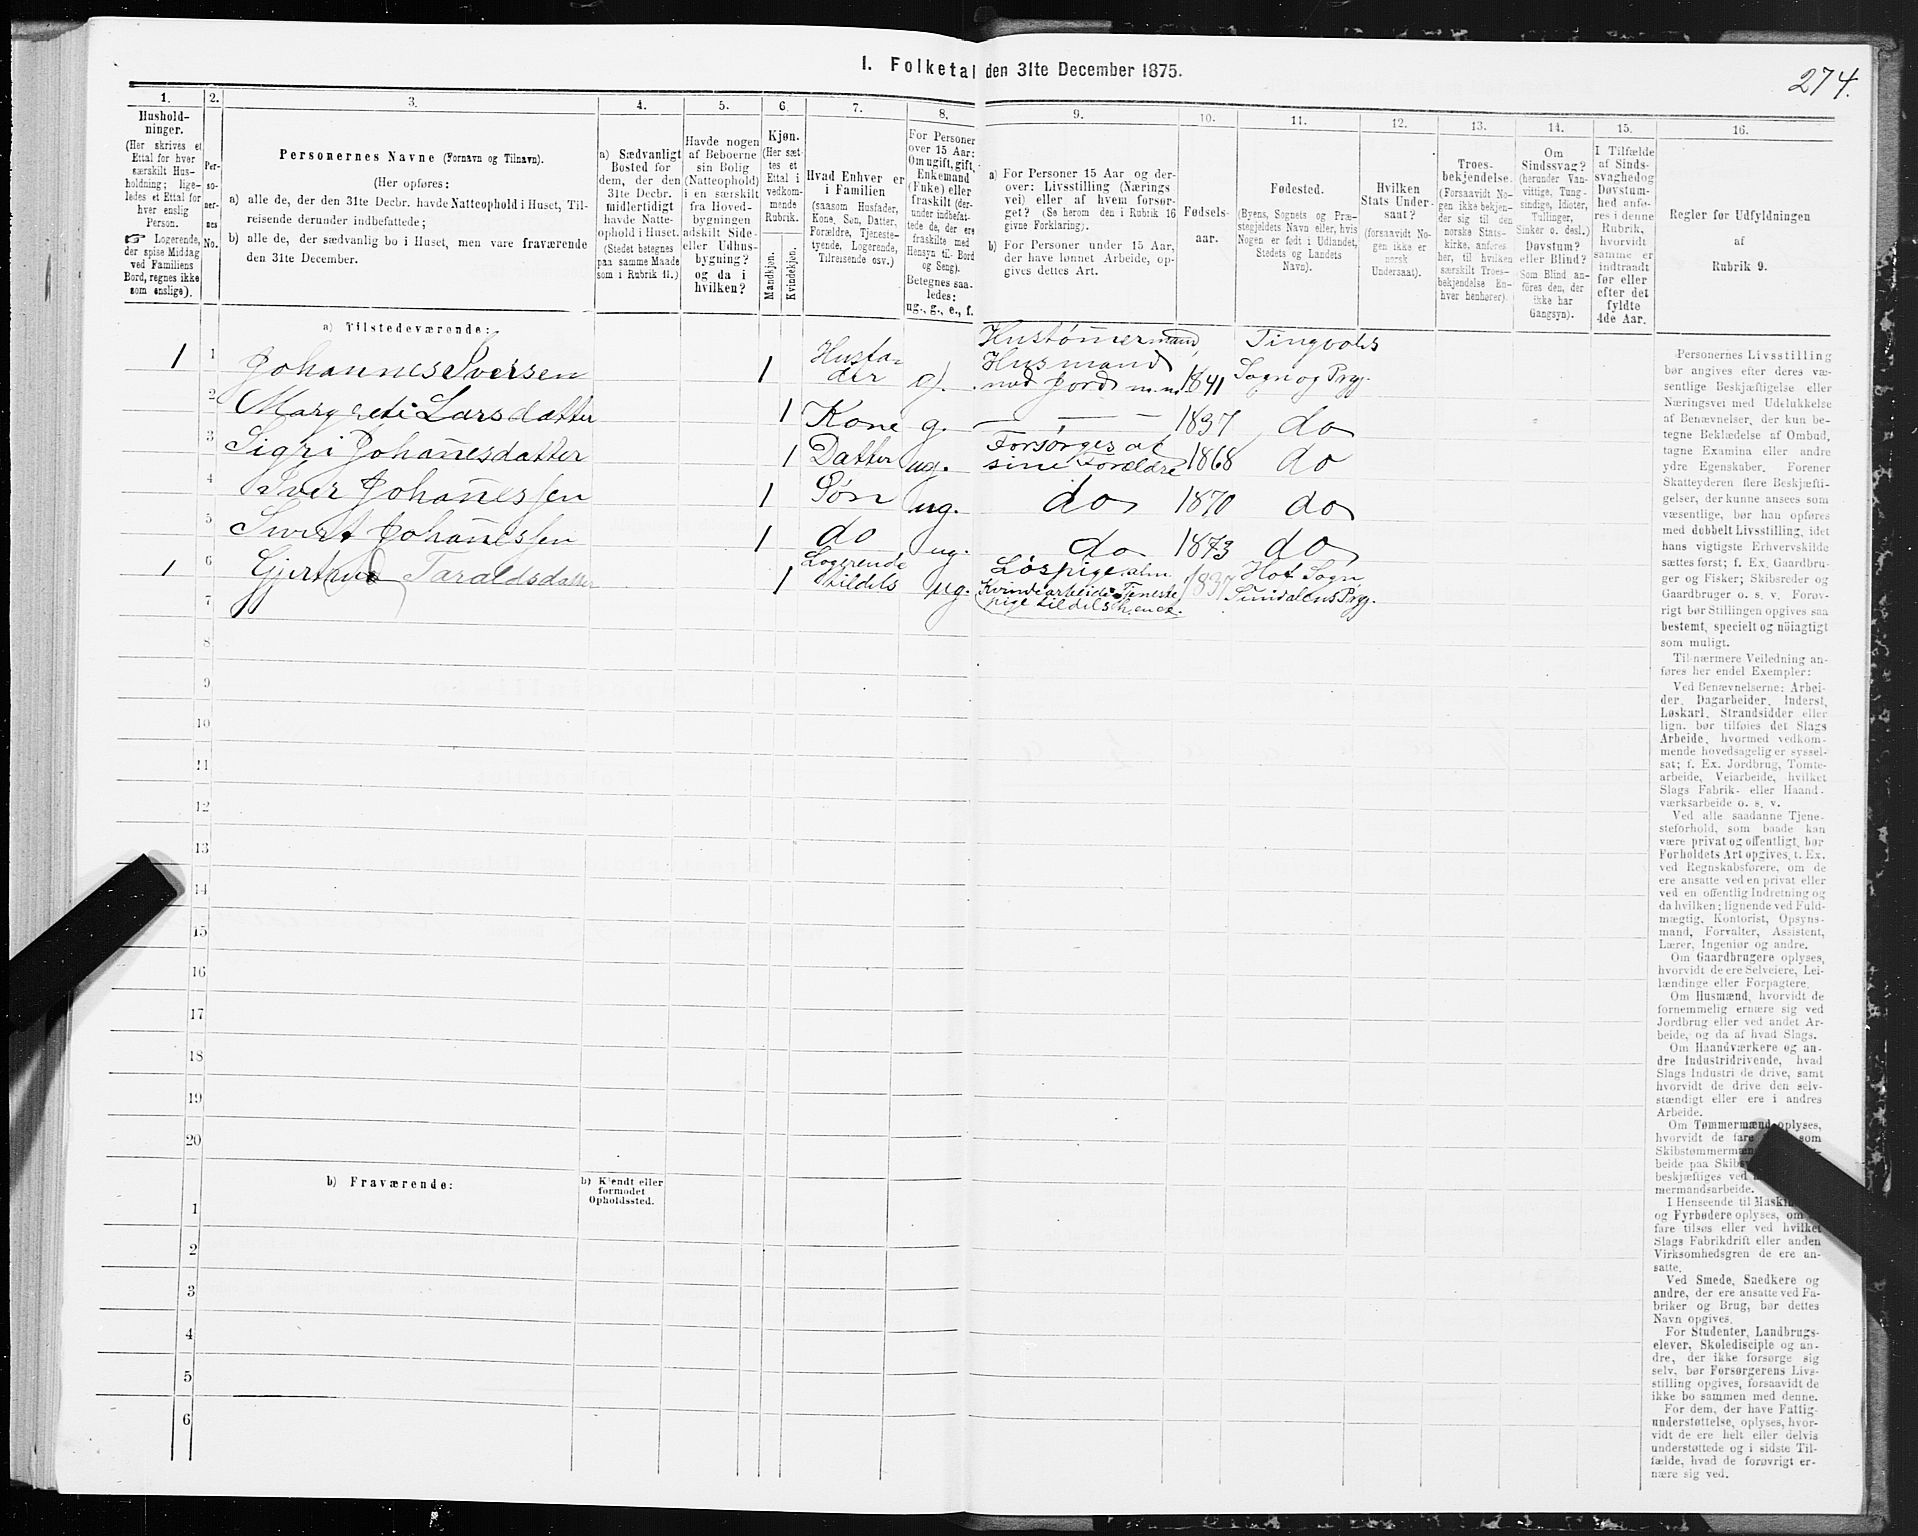 I. Folketal den 31te December 1875.
274.
1.
Hushold-
ninger.
(Her skrives et
Ettal for hver
særskilt Hus-
holdning; lige-
ledes et Ettal for
hver enslig
Person.
☞ Logerende,
der spise Middag
ved Familiens
Bord, regnes ikke
som enslige).
2.
Per-
so-
ner-
nes
No.
3.
Personernes Navne (Fornavn og Tilnavn).
(Her opføres:
a) alle de, der den 31te Decbr. havde Natteophold i Huset, Til-
reisende derunder indbefattede;
b) alle de, der sædvanlig bo i Huset, men vare fraværende
den 31te December.
4.
a) Sædvanligt
Bosted for
dem, der den
31te Decbr.
midlertidigt
havde Natte-
ophold i Huset.
(Stedet betegnes
paa samme Maade
som i Rubrik 11.)
5.
Havde nogen
af Beboerne
sin Bolig
(Natteophold)
i en særskilt
fra Hoved-
bygningen
adskilt Side-
eller Udhus-
bygning?
og da i
hvilken?
6.
Kjøn.
(Her sæt-
tes et
Ettal i
vedkom-
mende
Rubrik.
Mandkjøn.
Kvindekjøn.
7.
Hvad Enhver er
i Familien
(saasom Husfader,
Kone, Søn, Datter,
Forældre, Tjeneste-
tyende, Logerende,
Tilreisende osv.)
8.
For Personer
over 15 Aar:
Om ugift, gift,
Enkemand
(Enke) eller
fraskilt (der-
under indbefat-
tede de, der ere
fraskilte med
Hensyn til Bord
og Seng).
Betegnes saa-
ledes:
ug., g., e., f.
9.
a) For Personer 15 Aar og der-
over: Livsstilling (Nærings
vei) eller af hvem forsør-
get? (Se herom den i Rubrik 16
givne Forklaring).
b) For Personer under 15 Aar,
der have lønnet Arbeide, op-
gives dettes Art.
10.
Fødsels-
aar.
11.
Fødested.
(Byens, Sognets og Præ-
stegjeldets Navn eller, hvis
Nogen er født i Udlandet,
Stedets og Landets
Navn).
12.
Hvilken
Stats Under-
saat?
(forsaavidt No-
gen ikke er
norsk
Undersaat).
13.
Troes-
bekjendelse.
(Forsaavidt No-
gen ikke bekjen-
der sig til den
norske Stats-
kirke, anføres
her, til hvilken
særskilt Troes-
bekjendelse En-
hver henhører).
14.
Om
Sindssvag?
(herunder Van-
vittige, Tung-
sindige, Idioter,
Tullinger,
Sinker o. desl.)
Døvstum?
eller Blind?
(Som Blind an-
føres den, der
ikke har
Gangsyn).
15.
I Tilfælde
af Sinds-
svaghed og
Døvstum-
hed anfø-
res i denne
Rubrik,
hvorvidt
samme er
indtraadt
før eller
efter det
fyldte
4de Aar.
16.
Regler for Udfyldningen
af
Rubrik 9.
a) Tilstedeværende:
1 1 Johannes Iversen 1 Husfa-der g. Hustømmermand, Husmand med Jord m.m. 1841 Tingvolds Sogn og Prgj.
2 Larsdatter 1 Kone g. — — 1837 do
3 Sigri Johanesdatter 1 Datter ug. Forsørges af sine Forældre 1868 do
4 Iver Johanessen 1 Søn ug. do 1870 do
5 Sivert Johanessen 1 do ug. do 1873 do
1 6 Gjertrud Taraldsdatter 1 Logerende tildels ug. Løspige alm. Kvindearbeide Tjeneste pige tildels 1837 Hof Sogn Sundalens Prgj.
7
8
9
10
11
12
13
14
15
16
17
18
19
20
b) Fraværende:
b) Kjendt eller
formodet
Opholdssted.
1
2
3
4
5
6
Personernes Livsstilling
bør angives efter deres væ-
sentlige Beskjæftigelse eller
Næringsvei med Udelukkelse
af Benævnelser, der kun be-
tegne Beklædelse af Ombud,
tagne Examina eller andre
ydre Egenskaber. Forener
Skatteyderen flere Beskjæfti-
gelser, der kunne ansees som
væsentlige, bør han opføres
med dobbelt Livsstilling, idet
hans vigtigste Erhvervskilde
sættes først; f. Ex. Gaardbru-
ger og Fisker; Skibsreder og
Gaardbruger o. s. v. Forøv-
rigt bør Stillingen opgives saa
bestemt, specielt og nöiagtigt
som muligt.
Til nærmere Veiledning an-
føres her endel Exempler:
Ved Benævnelserne: Arbei-
der, Dagarbeider, Inderst,
Løskarl, Strandsidder eller
lign. bør tilføies det Slags
Arbeide, hvormed vedkom-
mende hovedsagelig er syssel-
sat; f. Ex. Jordbrug, Tomte-
arbeide, Veiarbeide, hvilket
Slags Fabrik- eller Haand-
værksarbeide o. s. v.
Ved alle saadanne Tjene-
steforhold, som baade kan
være privat og offentligt, bør
Forholdets Art opgives, t. Ex.
ved Regnskabsførere, om de
ere ansatte ved en privat eller
ved en offentlig Indretning og
da hvilken; lignende ved Fuld-
mægtig, Kontorist, Opsyns-
mand, Forvalter, Assistent,
Lærer, Ingeniør og andre.
Om Gaardbrugere oplyses,
hvorvidt de ere Selveiere, Lei-
lændinge eller Forpagtere.
Om Husmænd, hvorvidt de
fornemmelig ernære sig ved
Jordbrug eller ved andet Ar-
beide, og da af hvad Slags.
Om Haandværkere og an-
dre Industridrivende, hvad
Slags Industri de drive, samt
hvorvidt de drive den selv-
stændigt eller ere i andres
Arbeide.
Om Tømmermænd oplyses,
hvorvidt de fare som
Skibstømmermæn
beide paa Skibs
beskjæftiges ved
mermandsarbeide.
I Henseende til Maskin
og Fyrbødere oplyses, om
fare tilsøs eller ved hvilket
Slags Fabrikdrift eller anden
Virksomhedsgren de ere an-
satte.
Ved Smede, Snedkere og
andre, der ere ansatte ved Fa-
briker og Brug, bør dettes
Navn opgives.
For Studenter, Landbrugs-
elever, Skoledisciple og an-
dre, der ikke forsørge sig
selv, bør Forsørgerens Livs-
stilling opgives, forsaavidt de
ikke bo sammen med denne.
For dem, der have Fattig-
understøttelse, oplyses, hvor-
vidt de ere helt eller delvis
understøttede og i sidste Til-
fælde, hvad de forøvrigt er-
nære sig ved.